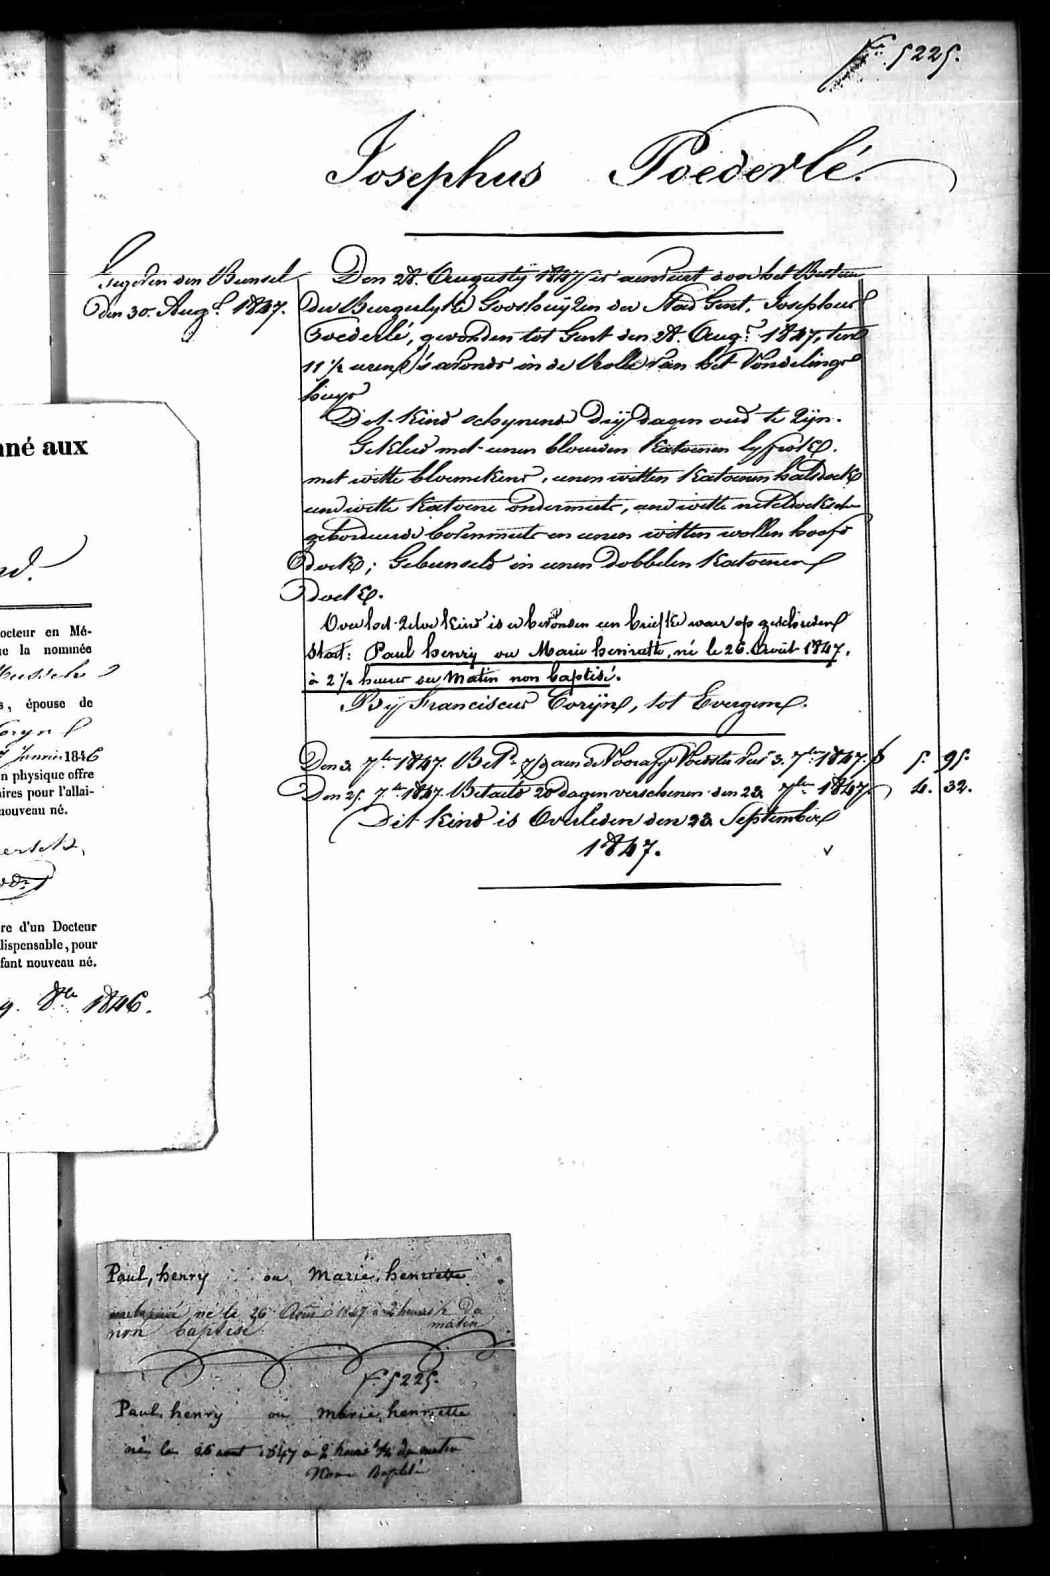 F.° 5225.
Josephus Poederlé.
den Bunsel
Den 30. Aug.t 1847.
Den 28. Augusty 1847 is aenveirt door het Bestier
der Burgerlyke Godshuyzen der Stad Gent, Josephus
Poederlé, gevonden tot Gent den 28. Aug.t 1847, ten
11 ½ uren 's avonds in de Rolle van het Vondelings
huys
Dit kind schynende Dry dagen oud te zyn.
Gekleed met eenen blouwen katoenen lyfrok
met witte bloemekens, eenen witten katoenen halsdoek
eene witte katoene ondermuts, eene witte neteldoeksche
gebordeurde bovenmuts en eenen witten wollen hoofd
doek; Gebunseld in eenen dobbelen katoenen
Doek.
Over het zelve kind is er bevonden een briefke waer op geschreven
staet: Paul henry ou Marie henriette, né le 26. Août 1847,
à 2 ½ heures du Matin non baptisé.
By Franciscus Coryn, tot Evergem.
Den 3. 7ber 1847. Bet.d aen de Voorss. Voedster 3. 7ber 1847. f 5. 95.
Den 25. 7ber 1847. Betaeld 20 dagen verschenen den 23. 7ber 1847 4. 32.
Dit kind is Overleden den 23 September
1847.
nné aux
nd.
octeur en Mé-
ue la nominée
s, épouse de
Coryn
Janvier 1846
n physique offre
ires pour l'allai-
nouveau né.
re d'un Docteur
dispensable, pour
fant nouveau né.
9. 8bre 1846.
Paul, henry ou marie, henriette
né le 26 Août 1847 à 2 heures ½ Du
matin
non baptisé
F. 5225.
Paul, henry ou marie, henriette
né le 26 aout 1847 a 2 heure ½ du matin
Non Baptisé